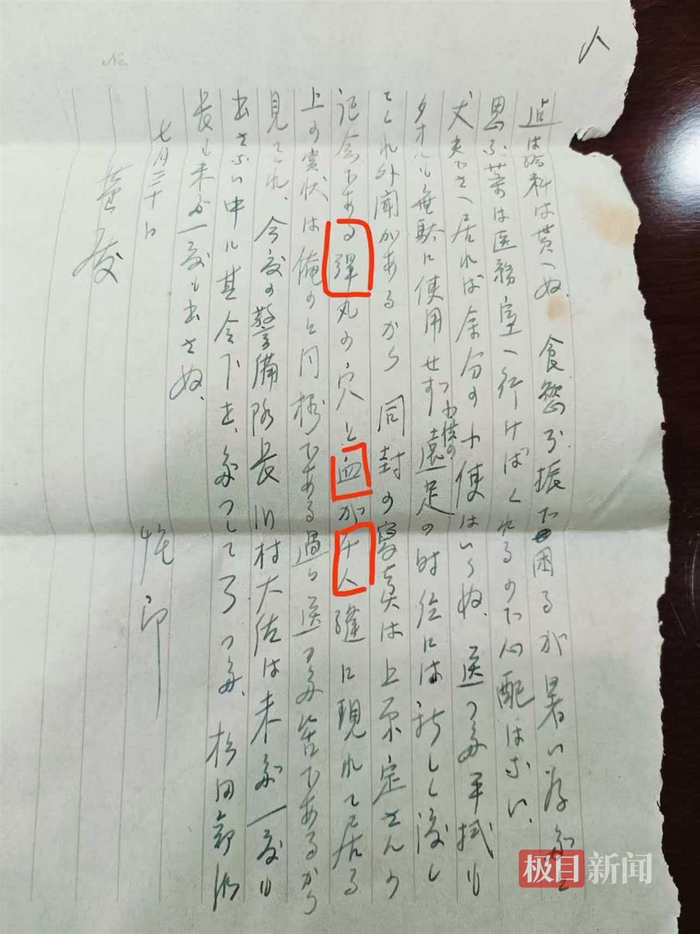 No.
は給料は貰へぬ。食慾不振で困るが暑い為だと
思ふ薬は医務室へ行けばくれるので心配はない、
丈夫でさへ居れば余分の小使はいらぬ、送つた手拭も
タオルも無駄に使用せず小供の遠足の時位には新しく渡し
てくれ外聞があるから 同封の写真は上原定さんの
記念である弾丸の穴と血が千人縫に現れて居る
上の賞状は俺のと同様である過日送つた筈であるから
見てくれ、今度の警備隊長川村大佐は未だ一度も
出さない中に つて了つた、松田部隊
長も未だ一度も出さぬ、
七月三十日
殿
极目新闻